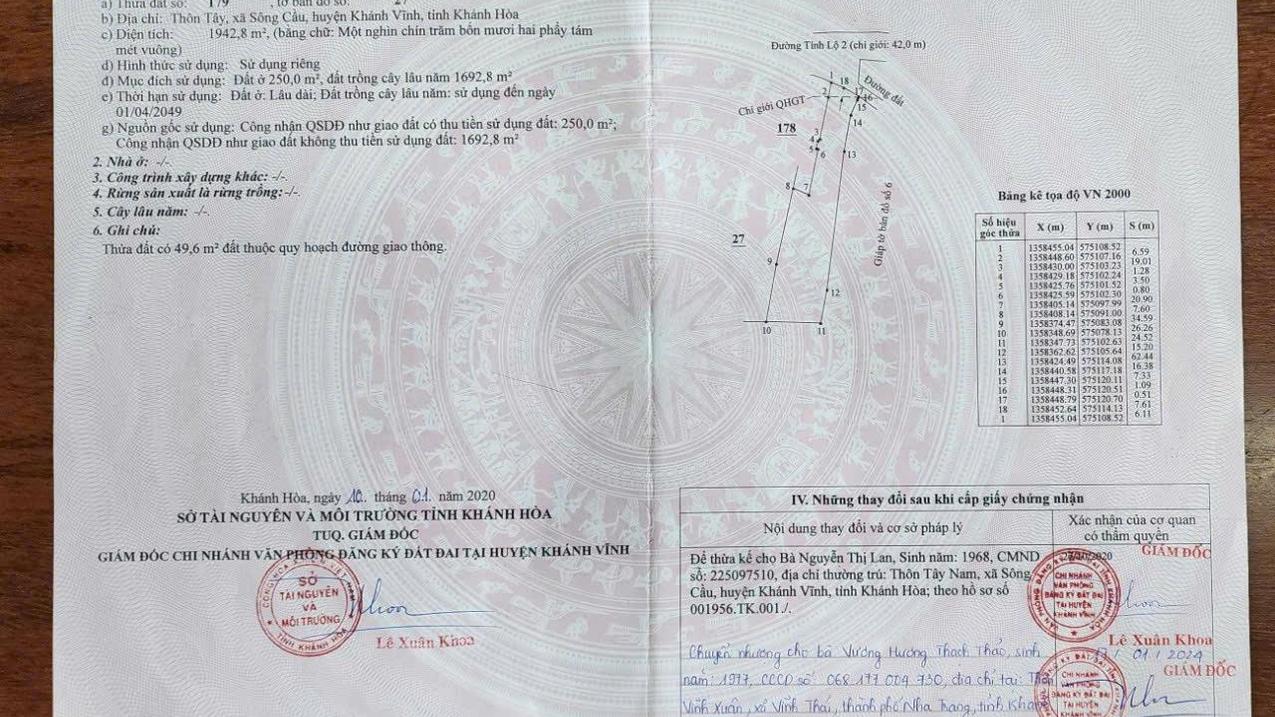 a) Thửa đất số: 179 , tờ bản đồ số: 27
b) Địa chỉ: Thôn Tây, xã Sông Cầu, huyện Khánh Vĩnh, tỉnh Khánh Hòa
c) Diện tích: 1942,8 m², (bằng chữ: Một nghìn chín trăm bốn mươi hai phẩy tám
mét vuông)
d) Hình thức sử dụng: Sử dụng riêng
đ) Mục đích sử dụng: Đất ở 250,0 m², đất trồng cây lâu năm 1692,8 m²
e) Thời hạn sử dụng: Đất ở: Lâu dài; Đất trồng cây lâu năm: sử dụng đến ngày
01/04/2049
g) Nguồn gốc sử dụng: Công nhận QSDĐ như giao đất có thu tiền sử dụng đất: 250,0 m²;
Công nhận QSDĐ như giao đất không thu tiền sử dụng đất: 1692,8 m²
2. Nhà ở: -/-.
3. Công trình xây dựng khác: -/-.
4. Rừng sản xuất là rừng trồng: -/-.
5. Cây lâu năm: -/-.
6. Ghi chú:
Thửa đất có 49,6 m² đất thuộc quy hoạch đường giao thông.
Khánh Hòa, ngày 10 tháng 01 năm 2020
SỞ TÀI NGUYÊN VÀ MÔI TRƯỜNG TỈNH KHÁNH HÒA
TUQ. GIÁM ĐỐC
GIÁM ĐỐC CHI NHÁNH VĂN PHÒNG ĐĂNG KÝ ĐẤT ĐAI TẠI HUYỆN KHÁNH VĨNH
SỞ
TÀI NGUYÊN
VÀ
MÔI TRƯỜNG
TỈNH KHÁNH HÒA
Lê Xuân Khoa
Đường Tỉnh Lộ 2 (chỉ giới: 42,0 m)
1
18
Đường đất
2
17
16
Chỉ giới QHGT
15
14
178
3
4
5
6
13
8
7
Giáp tờ bản đồ số 6
27
9
12
10
11
Bảng kê tọa độ VN 2000
Số hiệu góc thửa X (m) Y (m) S (m)
1 1358455.04 575108.52
6.59
2 1358448.60 575107.16
19.01
3 1358430.00 575103.23
1.28
4 1358429.18 575102.24
3.50
5 1358425.76 575101.52
0.80
6 1358425.59 575102.30
20.90
7 1358405.14 575097.99
7.60
8 1358408.14 575091.00
34.59
9 1358374.47 575083.08
26.26
10 1358348.69 575078.13
24.52
11 1358347.73 575102.63
15.20
12 1358362.62 575105.64
62.44
13 1358424.49 575114.08
16.38
14 1358440.58 575117.18
7.33
15 1358447.30 575120.11
1.09
16 1358448.31 575120.51
0.51
17 1358448.79 575120.70
7.61
18 1358452.64 575114.13
6.11
1 1358455.04 575108.52
IV. Những thay đổi sau khi cấp giấy chứng nhận
Nội dung thay đổi và cơ sở pháp lý
Xác nhận của cơ quan
có thẩm quyền
Để thừa kế cho Bà Nguyễn Thị Lan, Sinh năm: 1968, CMND
số: 225097510, địa chỉ thường trú: Thôn Tây Nam, xã Sông
Cầu, huyện Khánh Vĩnh, tỉnh Khánh Hòa; theo hồ sơ số
001956.TK.001./.
GIÁM ĐỐC
CHI NHÁNH
VĂN PHÒNG
ĐĂNG KÝ ĐẤT ĐAI
TẠI HUYỆN
KHÁNH VĨNH
Lê Xuân Khoa
Chuyển nhượng cho bà Vương Hương Thạch Thảo, sinh
năm: 1977, CCCD số 068 177 004 730, địa chỉ tại: Thôn
Vĩnh Xuân, xã Vĩnh Thái, thành phố Nha Trang, tỉnh Khánh
17/01/2024
GIÁM ĐỐC
CHI NHÁNH
VĂN PHÒNG
ĐĂNG KÝ ĐẤT ĐAI
TẠI HUYỆN
KHÁNH VĨNH